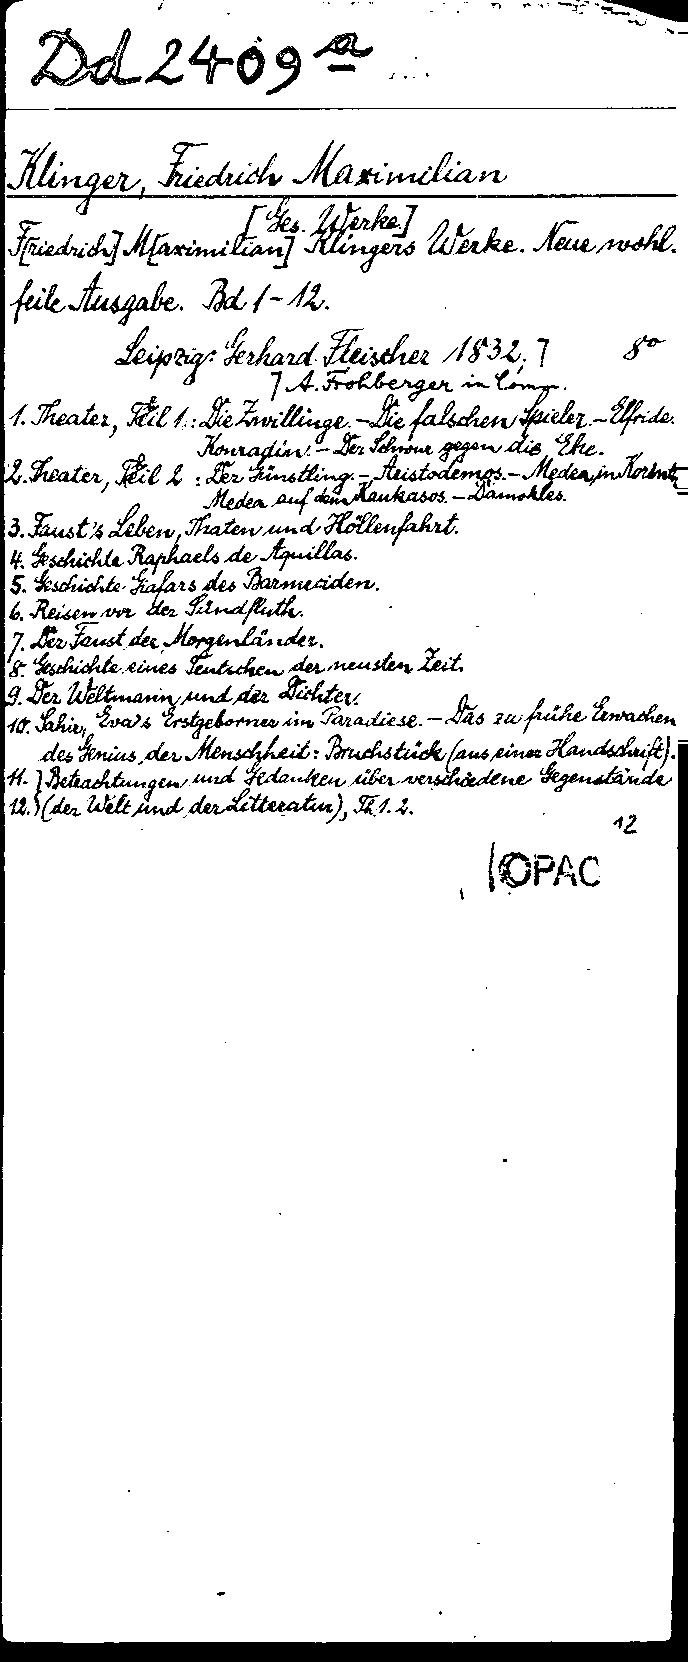 Dd 2409 a
Klinger, Friedrich Maximilian
[Ges. Werke.]
F[riedrich] M[aximilian] Klingers Werke. Neue wohl-
feile Ausgabe. Bd 1-12.
Leipzig: Gerhard Fleischer 1832. ⁊ 8°
⁊ A. Frohberger in Comm.
1. Theater, Theil 1: Die Zwillinge. – Die falschen Spieler. – Elfride.
Konradin. – Der Schwur gegen die Ehe.
2. Theater, Theil 2 : Der Günstling. – Aristodemos. – Medea in Korinth,
Medea auf dem Kaukasos. – Damokles.
3. Faust's Leben, Thaten und Höllenfahrt.
4. Geschichte Raphaels de Aquillas.
5. Geschichte Giafars des Barmeciden.
6. Reisen vor der Sündfluth.
7. Der Faust der Morgenländer.
8. Geschichte eines Teutschen der neusten Zeit.
9. Der Weltmann und der Dichter.
10. Sahir, Eva's Erstgeborner im Paradiese. – Das zu frühe Erwachen
des Genius der Menschheit: Bruchstück (aus einer Handschrift).
11. } Betrachtungen und Gedanken über verschiedene Gegenstände
12. } (der Welt und der Litteratur), Th. 1. 2.
12
OPAC